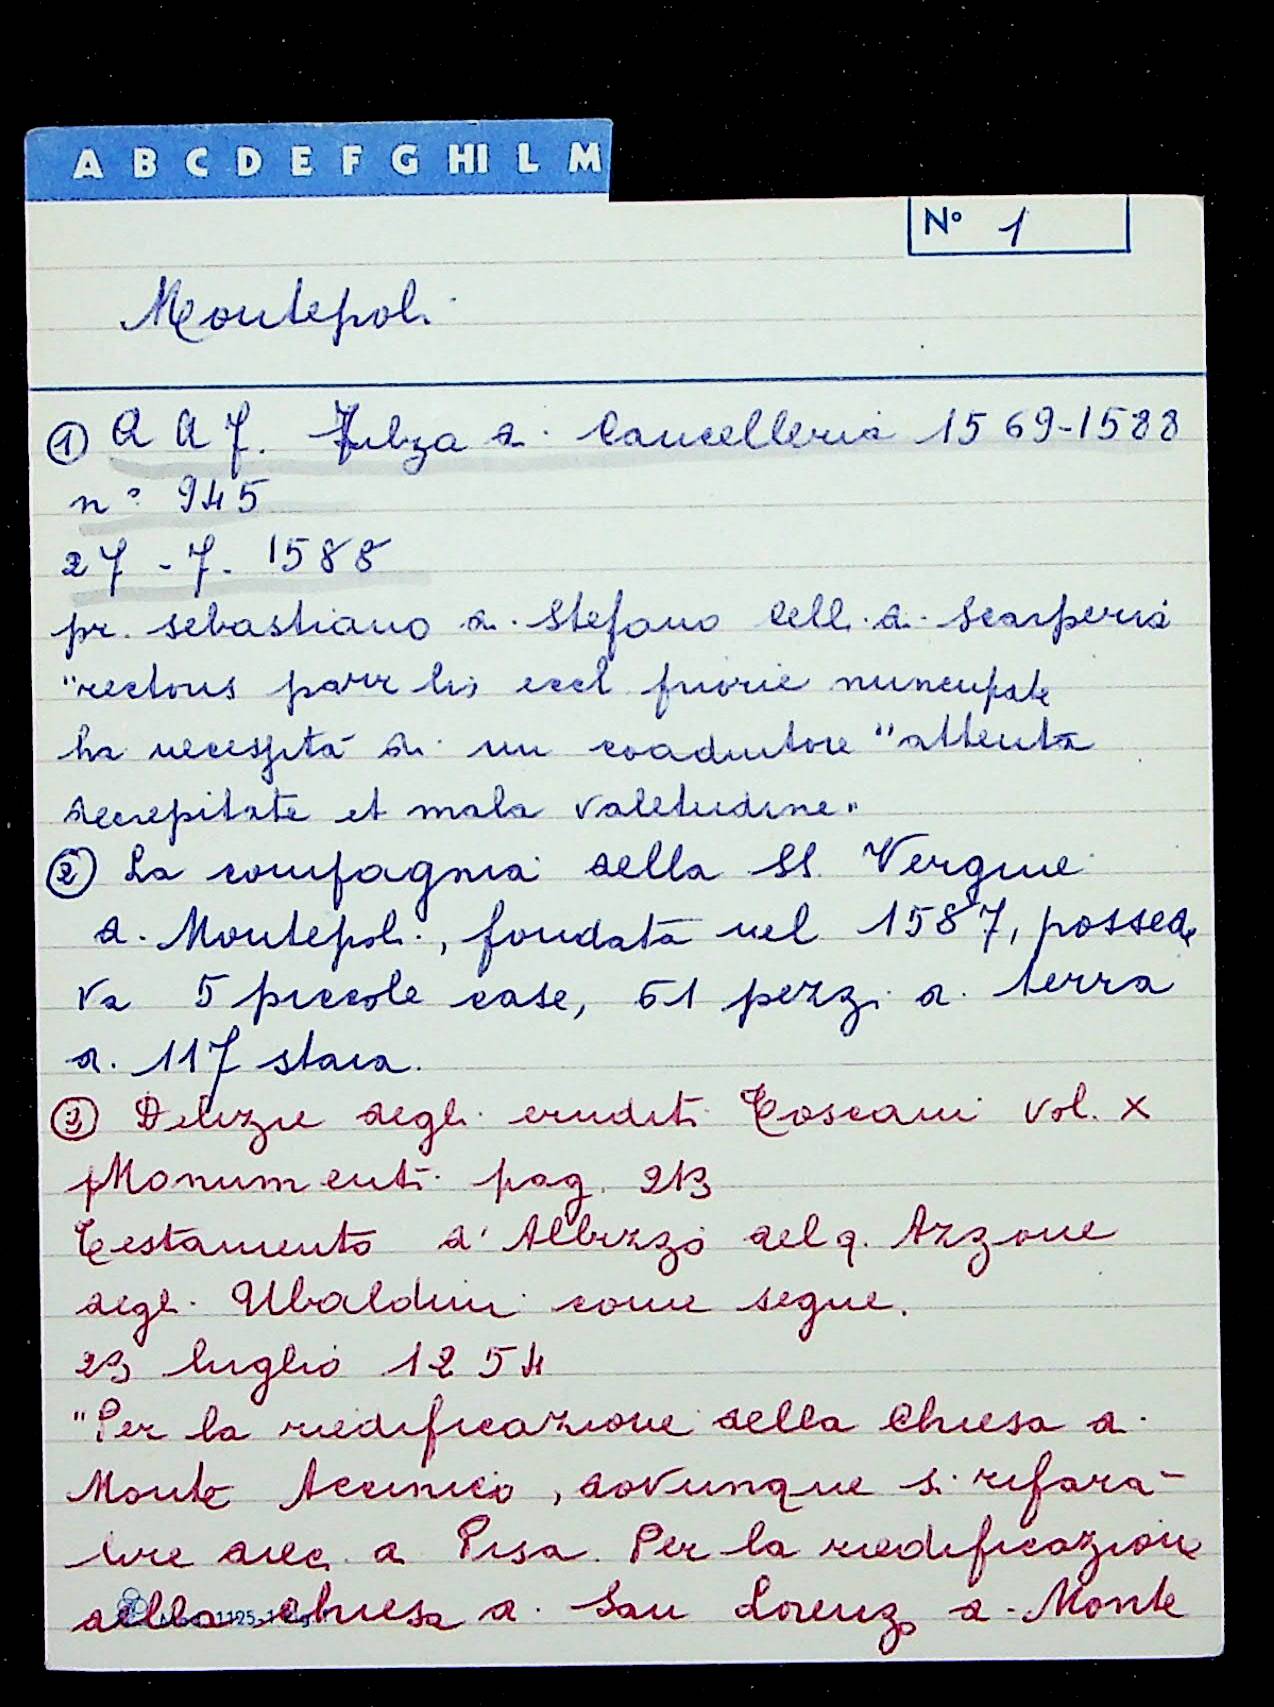 A B C D E F G HI L M
N° 1
Montepoli
① A A F. Filza di Cancelleria 1569-1588
n° 945
27-7-1588
pr. Sebastiano di Stefano Celli di Scarperia
"rectoris parr lis eccl nuncupate
ha necessità di un coadiutore "attenta
decrepitate et mala valetudine"
② La compagnia della SS. Vergine
di Montepoli, fondata nel 1587, possede
va 5 piccole case, 61 pezzi di terra
di 117 staia.
③ Delizie degli eruditi Toscani vol. X
Monumenti pag. 213
Testamento d'Albizzo del q. Azzone
degli Ubaldini come segue.
23 luglio 1254
"Per la riedificazione della Chiesa di
Monte Accinico, dovunque si rifarà
lire dieci di Pisa. Per la riedificazione
della Chiesa di San Lorenzo a Monte